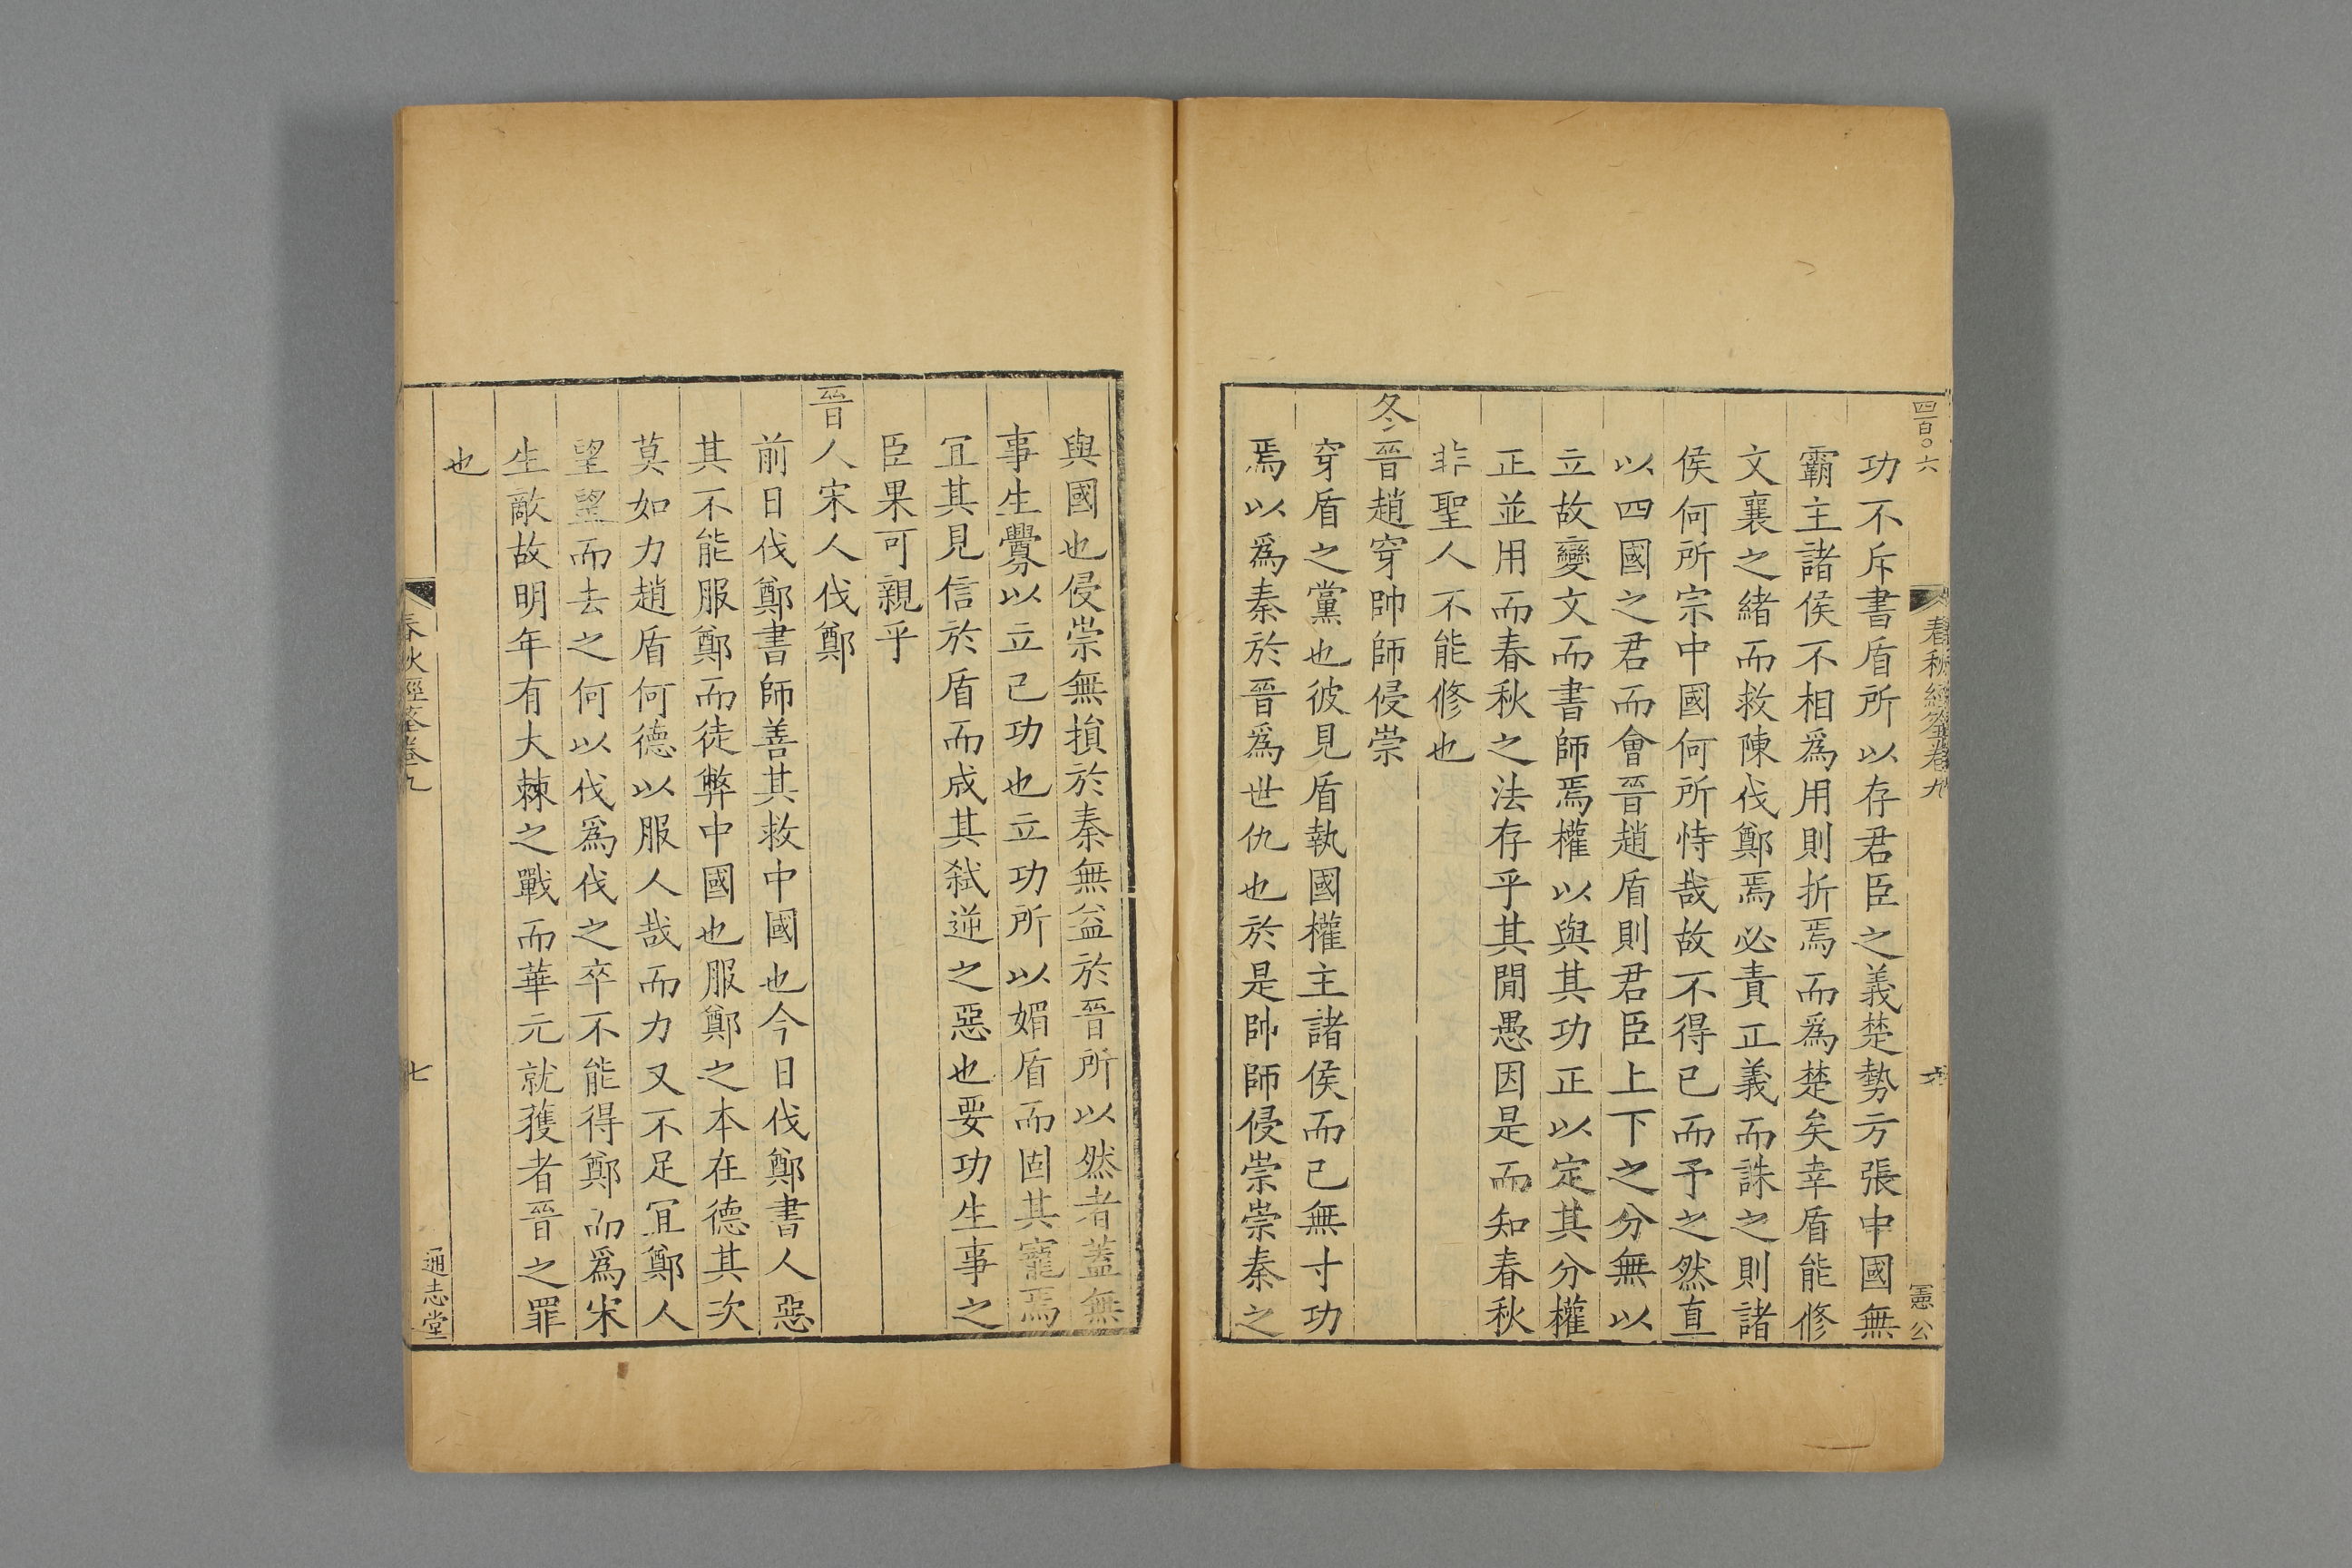 四百〇六
春秋經筌卷九
六
憲公
功不斥書盾所以存君臣之義楚勢方張中國無
霸主諸侯不相爲用則折焉而爲楚矣幸盾能修
文襄之緒而救陳伐鄭焉必責正義而誅之則諸
侯何所宗中國何所恃哉故不得已而予之然直
以四國之君而會晉趙盾則君臣上下之分無以
立故變文而書師焉權以與其功正以定其分權
正並用而春秋之法存乎其閒愚因是而知春秋
非聖人不能修也
冬晉趙穿帥師侵崇
穿盾之黨也彼見盾執國權主諸侯而已無寸功
焉以爲秦於晉爲世仇也於是帥師侵崇崇秦之
與國也侵崇無損於秦無益於晉所以然者蓋無
事生釁以立己功也立功所以媚盾而固其寵焉
冝其見信於盾而成其弑逆之惡也要功生事之
臣果可親乎
晉人宋人伐鄭
前日伐鄭書師善其救中國也今日伐鄭書人惡
其不能服鄭而徒弊中國也服鄭之本在德其次
莫如力趙盾何德以服人哉而力又不足冝鄭人
望望而去之何以伐爲伐之卒不能得鄭而爲宋
生敵故明年有大棘之戰而華元就獲者晉之罪
也
春秋經筌卷九
七
通志堂